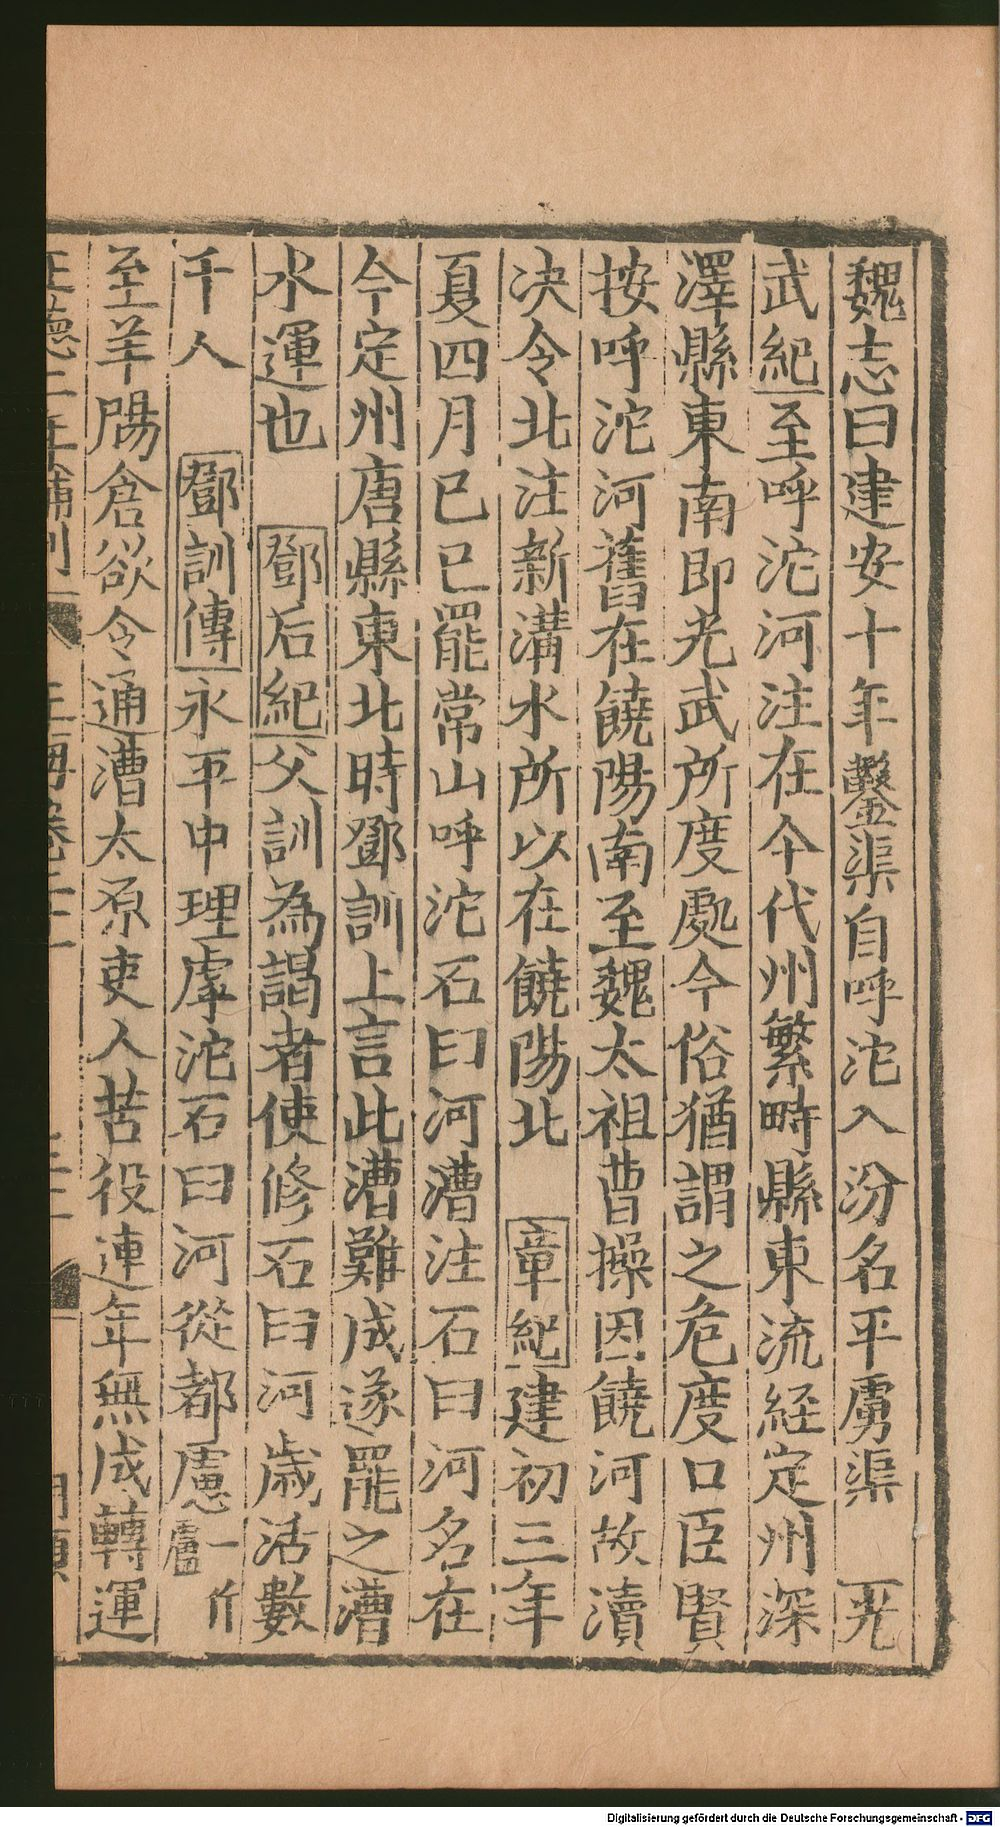 魏志曰建安十年鑿渠自呼沱入汾名平虜渠　光
武紀至呼沱河注在今代州繁畤縣東流経定州深
澤縣東南即光武所度處今俗猶謂之危度口臣賢
按呼沱河舊在饒陽南至魏太祖曹操因饒河故瀆
决令北注新溝水所以在饒陽北　章紀建初三年
夏四月己巳罷常山呼沱石臼河漕注石臼河名在
今定州唐縣東北時鄧訓上言此漕難成遂罷之漕
水運也　鄧后紀父訓為謁者使修石臼河歲活數
千人　鄧訓傳永平中理虖沱石臼河從都慮一作盧
至羊腸倉欲令通漕太原吏人苦役連年無成轉運
正德二年補刊
Digitalisierung gefördert durch die Deutsche Forschungsgemeinschaft - DFG